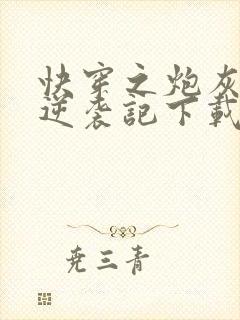 快穿之炮灰
逆袭記下載
尧三青